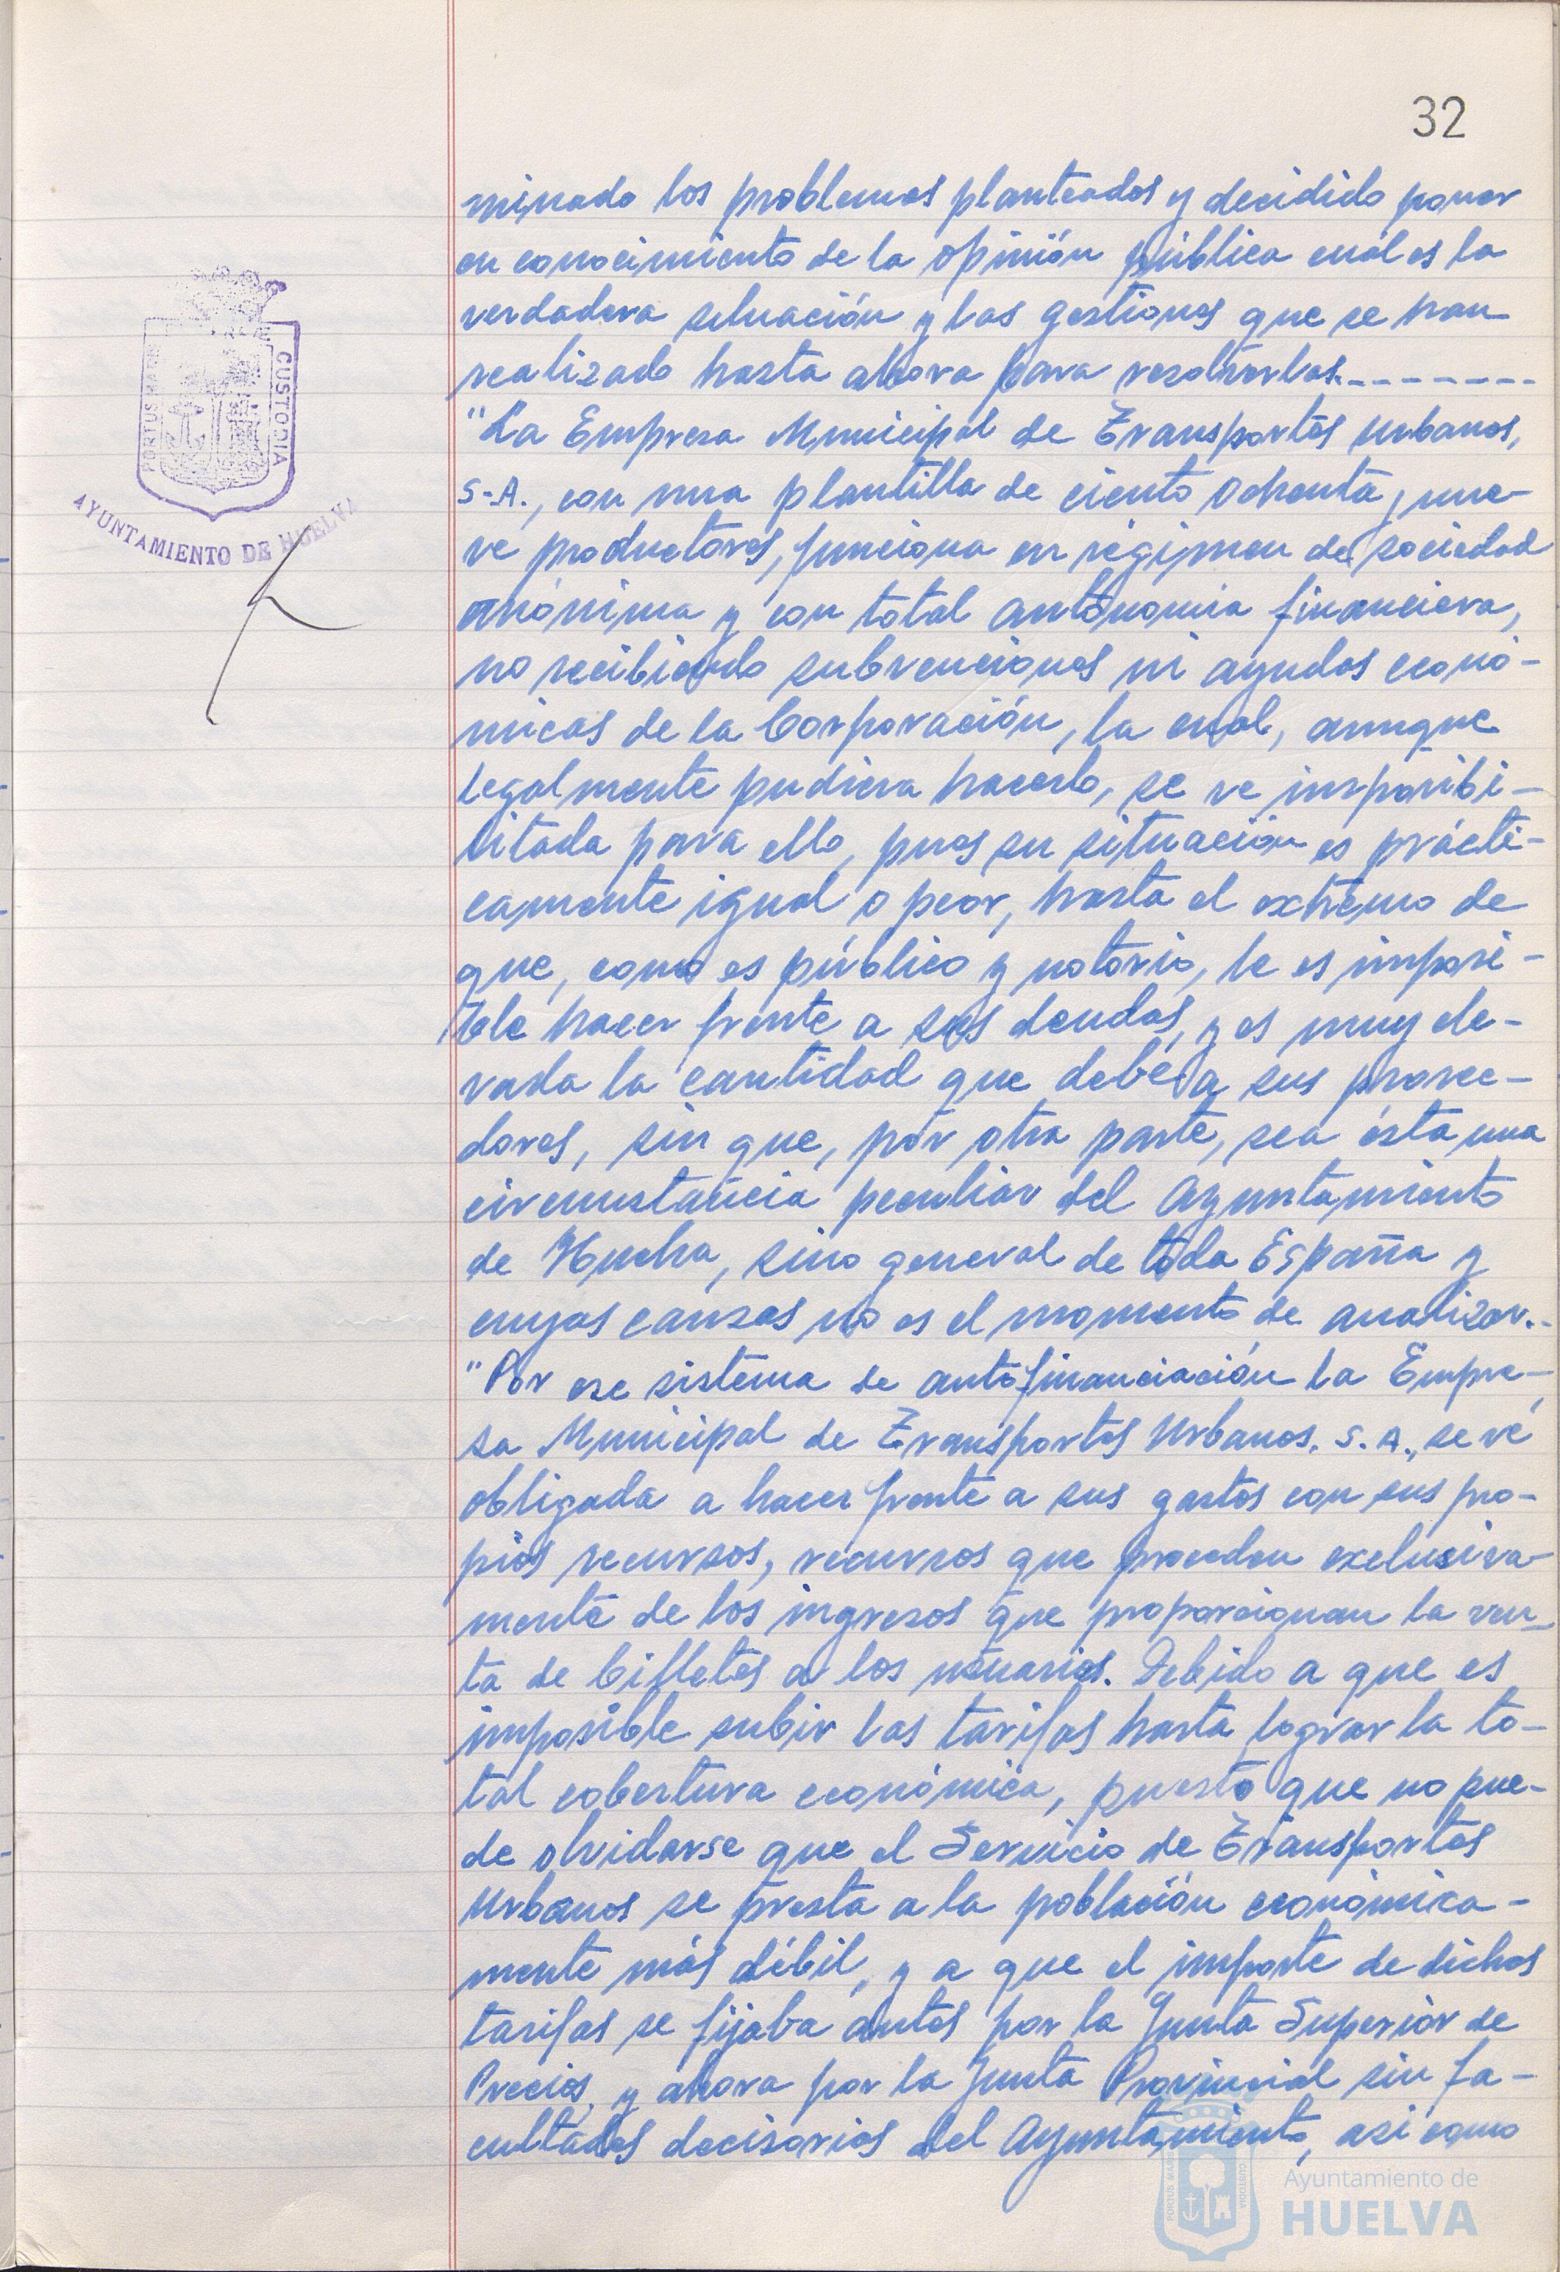 32
minado los problemas planteados y decidido poner
en conocimiento de la opinión pública cuál es la
verdadera situación y las gestiones que se han
realizado hasta ahora para resolverlas.--------
"La Empresa Municipal de Transportes Urbanos,
S.A., con una plantilla de ciento ochenta y nue-
ve productores, funciona en régimen de sociedad
anónima y con total autonomía financiera,
no recibiendo subvenciones ni ayudas econó-
micas de la Corporación, la cual, aunque
legalmente pudiera hacerlo, se ve imposibi-
litada para ello, pues su situación es prácti-
camente igual o peor, hasta el extremo de
que, como es público y notorio, le es imposi-
ble hacer frente a sus deudas, y es muy ele-
vada la cantidad que debe a sus provee-
dores, sin que, por otra parte, sea ésta una
circunstancia peculiar del Ayuntamiento
de Huelva, sino general de toda España y
cuyas causas no es el momento de analizar.-
"Por ese sistema de autofinanciación la Empre-
sa Municipal de Transportes Urbanos, S.A., se vé
obligada a hacer frente a sus gastos con sus pro-
pios recursos, recursos que proceden exclusiva-
mente de los ingresos que proporcionan la ven-
ta de billetes a los usuarios. Debido a que es
imposible subir las tarifas hasta lograr la to-
tal cobertura económica, puesto que no pue-
de olvidarse que el Servicio de Transportes
Urbanos se presta a la población económica-
mente más débil, y a que el importe de dichas
tarifas se fijaba antes por la Junta Superior de
Precios, y ahora por la Junta Provincial sin fa-
cultades decisorias del Ayuntamiento, así como
PORTUS MARIS
CUSTODIA
AYUNTAMIENTO DE HUELVA
PORTUS MARIS
CUSTODIA
Ayuntamiento de
HUELVA